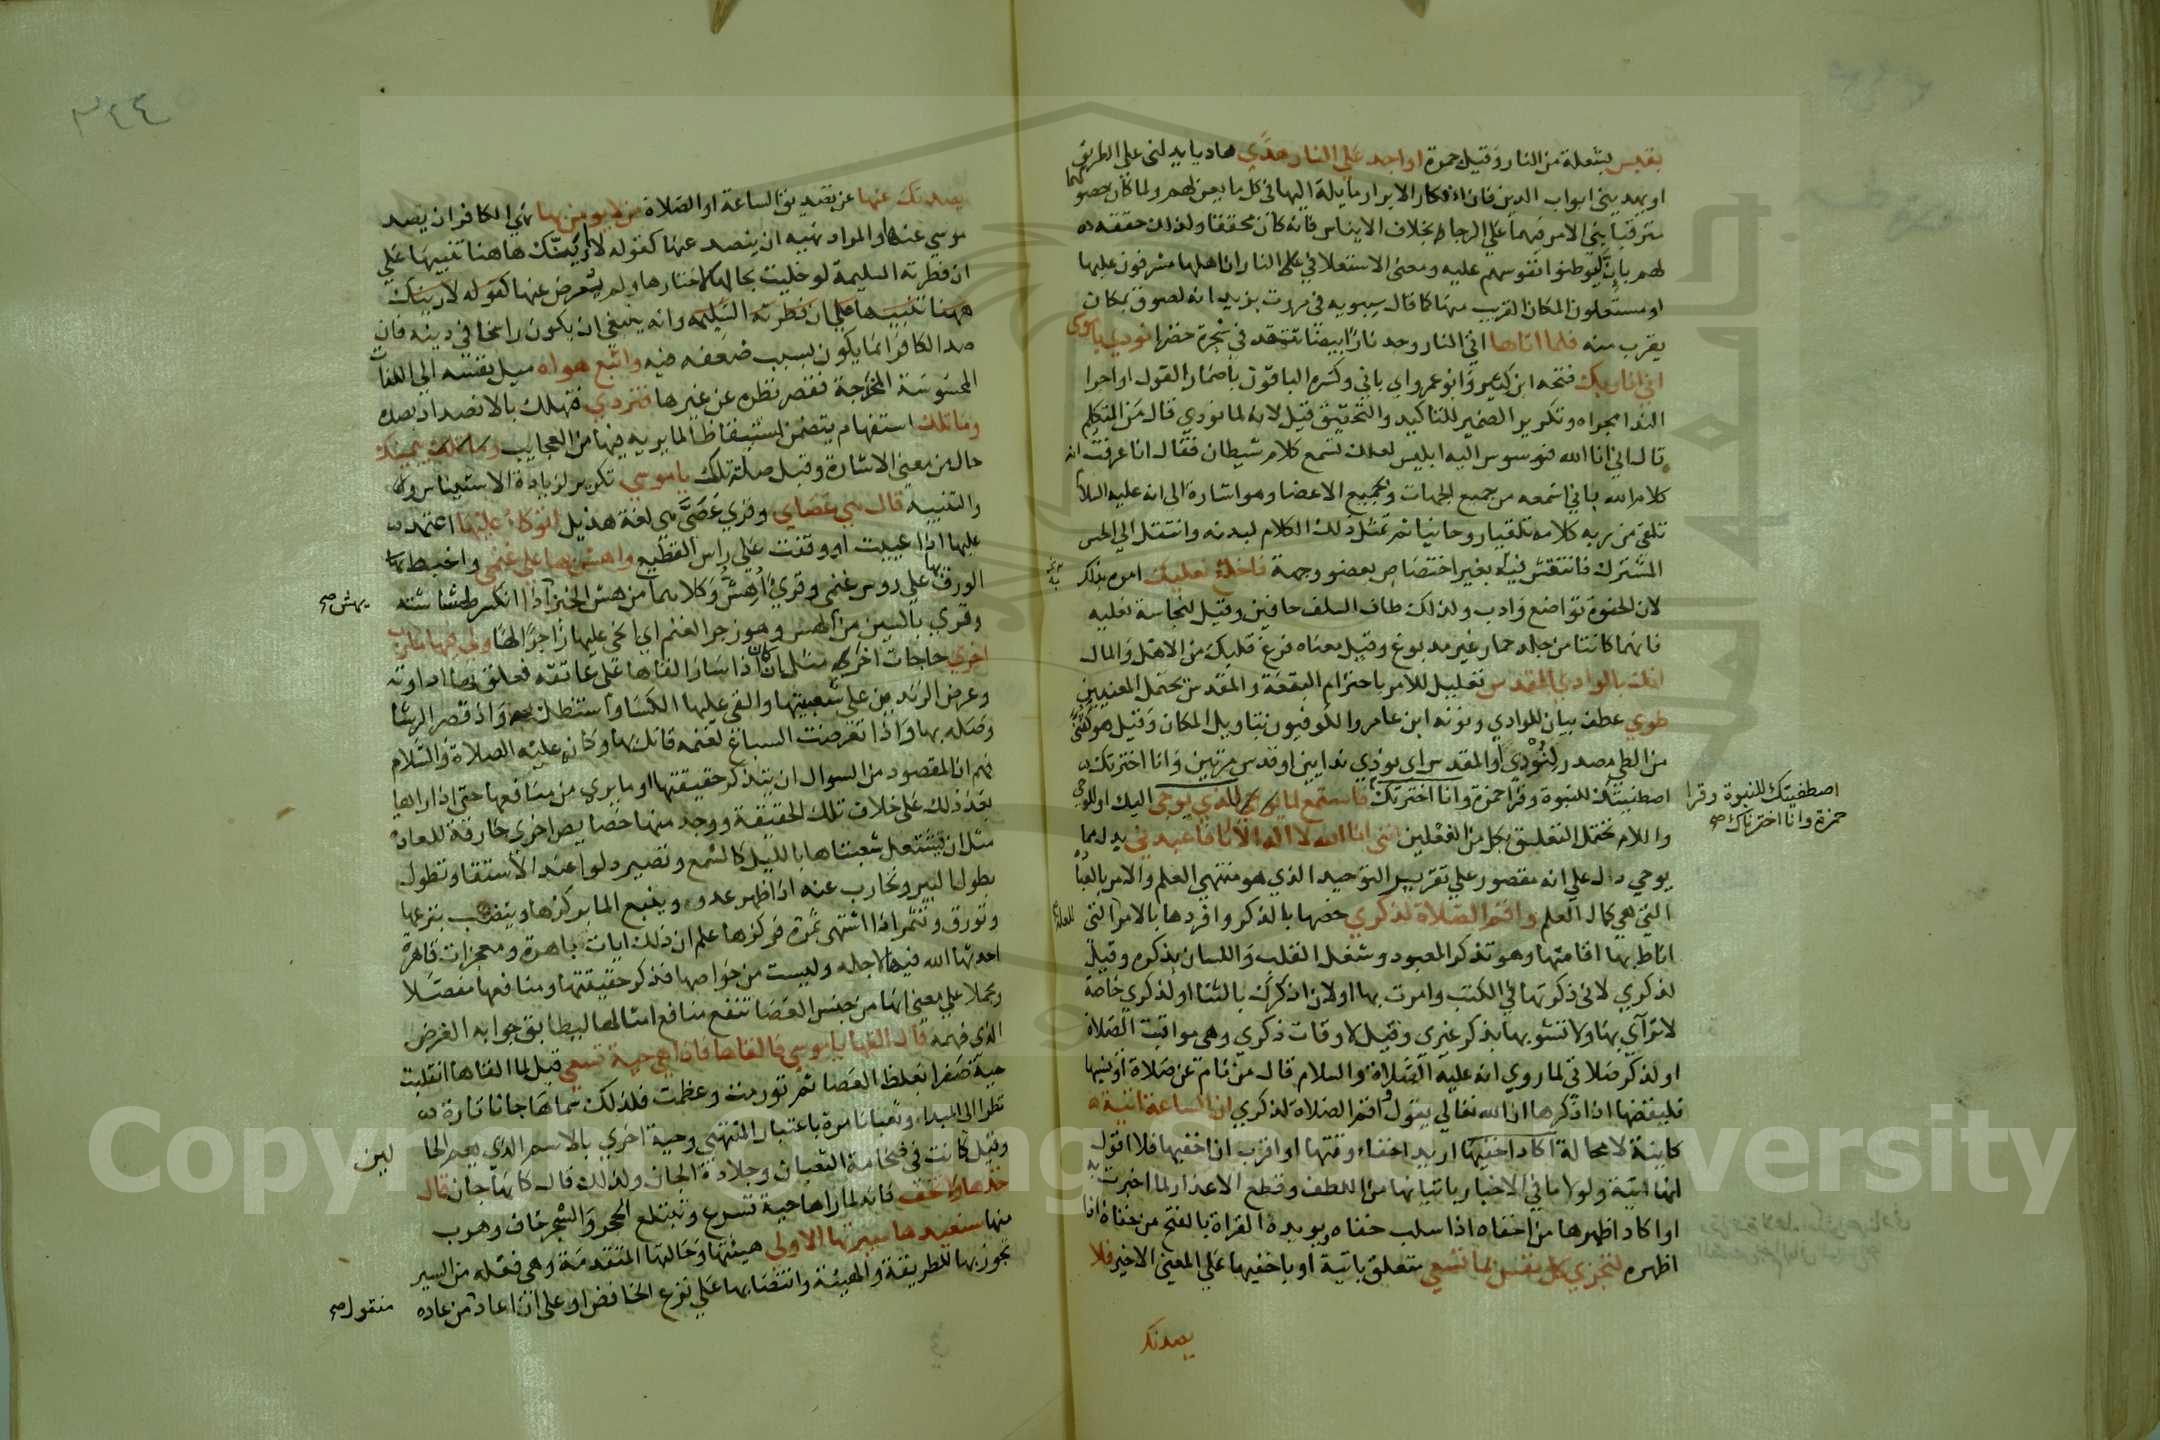 بقبس بشعلة من النار وقيل جمرة او اجد على النار هدي هاديا يدلني على الطريق
او يهديني ابواب الدين فان افكار الابرار مايلة اليها في كل ما يعن لهم ولما كان حصولهما
مترقبا بني الامر فيهما على الرجا بخلاف الايناس فانه كان محققا ولذلك حققه
لهم بان ليوطنوا نفوسهم عليه ومعنى الاستعلا في على النار ان اهلها مشرفون عليها
او مستعلون المكان القريب منها كما قال سيبويه في مررت بزيد انه لصوق بمكان
يقرب منه فلما اتاها اتي النار وجد نارا بيضا تتقد في شجرة خضرا نودي يا موسى
اني انا ربك فتحه ابن كثير وابو عمرو اي باني وكسره الباقون باضمار القول او اجرا
الندا مجراه وتكرير الضمير للتاكيد والتحقيق قيل لانه لما نودي قال من المتكلم
قال اني انا الله فوسوس اليه ابليس لعلك تسمع كلام شيطان فقال انا عرفت انه
كلام الله باني اسمعه من جميع الجهات وبجميع الاعضا وهو اشارة الى انه عليه السلام
تلقى من ربه كلامه تلقيا روحانيا ثم تمثل ذلك الكلام لبدنه وانتقل الي الحس
المشترك فانتقش فيه بغير اختصاص بعضو وجهة فاخلع نعليك امره بذلك
لان الحفوة تواضع وادب ولذلك طاف السلف حافين وقيل لنجاسة نعليه
فانهما كانتا من جلد حمار غير مدبوغ وقيل معناه فرغ قلبك من الاهل والمال
انك بالوادي المقدس تعليل للامر باحترام البقعة والمقدس يحتمل المعنيين
طوي عطف بيان للوادي ونونه ابن عامر والكوفيون بتاويل المكان وقيل هو كثنى
من الطي مصدر لنودي او المقدس اي نودي ندايين او قدس مرتين وانا اخترتك
اصطفيتك للنبوة وقرا حمزة وانا اخترناك فاستمع لما يوحى للذي يوحى اليك او للوحي
اصطفيتك للنبوة وقرا
حمزة وانا اخترناك صح
واللام تحتمل التعلق بكل من الفعلين انني انا الله لا اله الا انا فاعبدني بدل مما
يوحي دال على انه مقصور علي تقرير التوحيد الذي هو منتهى العلم والامر بالعبادة
التي هي كمال العلم واقم الصلاة لذكري خصها بالذكر وافردها بالامر التي للعلة
اناط بها اقامتها وهو تذكر المعبود وشغل القلب واللسان بذكره وقيل
لذكري لاني ذكرتها في الكتب وامرت بها او لان اذكرك بالثنا او لذكري خاصة
لا ترآي بها ولا تشوبها بذكر غيري وقيل لاوقات ذكري وهي مواقيت الصلاة
او لذكر صلاتي لما روي انه عليه الصلاة والسلام قال من نام عن صلاة او نسيها
فليقضها اذا ذكرها ان الله تعالى يقول واقم الصلاة لذكري ان الساعة اتية
كاينة لا محالة اكاد اخفيها اريد اخفاء وقتها او اقرب ان اخفيها فلا اقول
انها اتية ولولا ما في الاخبار باتيانها من اللطف وقطع الاعذار لما اخبرت به
او اكاد اظهرها من اخفاه اذا سلب خفاه ويويده القراة بالفتح من خفاه اذا
اظهره لتجزي كل نفس بما تسعي متعلق باتية او باخفيها على المعنى الاخير فلا
يصدنك
يصدنك عنها عن تصديق الساعة او الصلاة من لا يومن بها نهي الكافر ان يصد
موسي عنها والمراد نهيه ان ينصد عنها كقوله لا ارينك هاهنا تنبيها على
ان فطرته السليمة لو خليت بحالها لاختارها ولم يتعرض عنها كقوله لا ارينك
ههنا تنبيها على ان فطرته السليمة وانه ينبغي ان يكون راسخا في دينه فان
صد الكافر انما يكون بسبب ضعفه فيه واتبع هواه ميل نفسه الي اللذات
المحسوسة المخدجة فقصر نظره عن غيرها فتردي فتهلك بالانصداد بصده
وما تلك استفهام يتضمن استيقاظا لما يريه فيها من العجايب وما تلك بيمينك
حال من معنى الاشارة وقيل صلة تلك يا موسي تكرير لزيادة الاستيناس
والتنبيه قال هي عصاي وقري عصي على لغة هذيل اتوكا عليها اعتمد
عليها اذا عييت او وقفت على راس القطيع واهش بها على غنمي واخبط بها
الورق على روس غنمي وقري اهش وكلاهما من هش الخبز اذا انكسر لهشاشته
يهش صح
وقري بالسين من الهس وهو زجر الغنم اي انحي عليها زاجرا لها ولي فيها مارب
اخري حاجات اخري مثل ان كان اذا سار القاها على عاتقه فعلق بها اداوته
وعرض الزندين على شعبتيها والقى عليها الكسا واستظل به واذا قصر الرشا
وصله بها واذا تعرضت السباع لغنمه قاتل بها وكانه عليه الصلاة والسلام
فهم ان المقصود من السوال ان يتذكر حقيقتها وما يرى من منافعها حتى اذا راها
بعد ذلك على خلاف تلك الحقيقة ووجد منها خصايص اخري خارقة للعادة
مثل ان تشتعل شعبتاها بالليل كالشمع وتصير دلوا عند الاستقا وتطول
بطول البير وتحارب عنه اذا ظهر عدو وينبع الما بركزها وينضب بنزعها
وتورق وتثمر اذا اشتهى ثمرة فركزها علم ان ذلك ايات باهرة ومعجزات قاهرة
احدثها الله فيها لاجله وليست من خواصها فذكر حقيقتها ومنافعها مفصلا
ومجملا علي معنى انها من جنس العصا تنفع منافع امثالها ليطابق جوابه الغرض
الذي فهمه قال القها يا موسي فالقاها فاذا هي حية تسعي قيل لما القاها انقلبت
حية صفرا بغلظ العصا ثم تورمت وعظمت فلذلك سماها جانا تارة
نظرا الى المبدا وثعبانا مرة باعتبار المنتهي وحية اخري بالاسم الذي يعم الحالين
وقيل كانت في ضخامة الثعبان وجلادة الجان ولذلك قال كانها جان قال
خذها ولا تخف فانه لما راها حية تسرع وتبتلع الحجر والشجر خاف وهرب
منها سنعيدها سيرتها الاولى هيئتها وحالتها المتقدمة وهي فعله من السير
تجوز بها للطريقة والهيئة وانتصابها على نزع الخافض او على ان اعاد من عاده
منقول صح
٣٤٤
Copyright © King Saud University